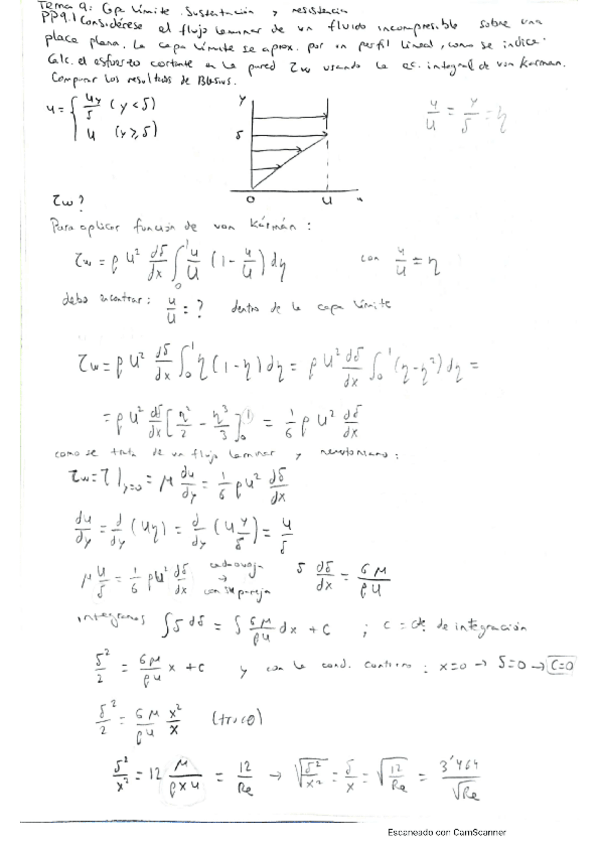 Tema 9: Capa límite. Sustentación y resistencia
PP9.1 Considérese el flujo laminar de un fluido incompresible sobre una
placa plana. La capa límite se aprox. por un perfil lineal, como se indica.
Calc. el esfuerzo cortante en la pared τw usando la ec. integral de von Karman.
Comparar los resultados de Blasius.
u = { Uy/δ (y < δ)
U (y ≥ δ)
y
δ
0 U
u/U = y/δ = η
τw?
Para aplicar función de von Kármán:
τw = ρ U² dδ/dx ∫₀¹ u/U (1 - u/U) dη con u/U = η
debo encontrar: u/U = ? dentro de la capa límite
τw = ρ U² dδ/dx ∫₀¹ η (1 - η) dη = ρ U² dδ/dx ∫₀¹ (η - η²) dη =
= ρ U² dδ/dx [η²/2 - η³/3]₀¹ = 1/6 ρ U² dδ/dx
como se trata de un flujo laminar y newtoniano:
τw = τ|y=0 = μ du/dy = 1/6 ρ U² dδ/dx
du/dy = d/dy (Uη) = d/dy (U y/δ) = U/δ
μ U/δ = 1/6 ρU² dδ/dx cada oveja → con su pareja δ dδ/dx = 6μ/ρU
integramos ∫δ dδ = ∫ 6μ/ρU dx + C ; C = cte. de integración
δ²/2 = 6μ/ρU x + C y con la cond. contorno: x=0 → δ=0 → C=0
δ²/2 = 6μ/ρU x²/x (truco)
δ²/x² = 12 μ/ρxU = 12/Re → √δ²/x² = δ/x = √12/Re = 3'464/√Re
Escaneado con CamScanner